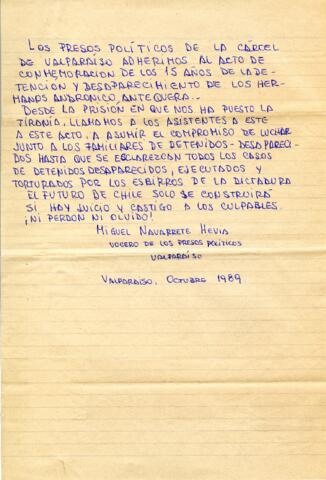 LOS PRESOS POLÍTICOS DE LA CÁRCEL
DE VALPARAÍSO ADHERIMOS AL ACTO DE
CONMEMORACION DE LOS 15 AÑOS DE LA DE-
TENCIÓN Y DESAPARECIMIENTO DE LOS HER-
MANOS ANDRONICO ANTEQUERA.-
DESDE LA PRISIÓN EN QUE NOS HA PUESTO LA
TIRANÍA, LLAMAMOS A LOS ASISTENTES A ESTE
A ESTE ACTO, A ASUMIR EL COMPROMISO DE LUCHAR
JUNTO A LOS FAMILIARES DE DETENIDOS-DESAPARECI-
DOS HASTA QUE SE ESCLAREZCAN TODOS LOS CASOS
DE DETENIDOS DESAPARECIDOS, EJECUTADOS Y
TORTURADOS POR LOS ESBIRROS DE LA DICTADURA
EL FUTURO DE CHILE SOLO SE CONSTRUIRÁ
SI HAY JUICIO Y CASTIGO A LOS CULPABLES.
¡NI PERDON NI OLVIDO!
MIGUEL NAVARRETE HEVIA
VOCERO DE LOS PRESOS POLÍTICOS
VALPARAÍSO
VALPARAÍSO, OCTUBRE 1989